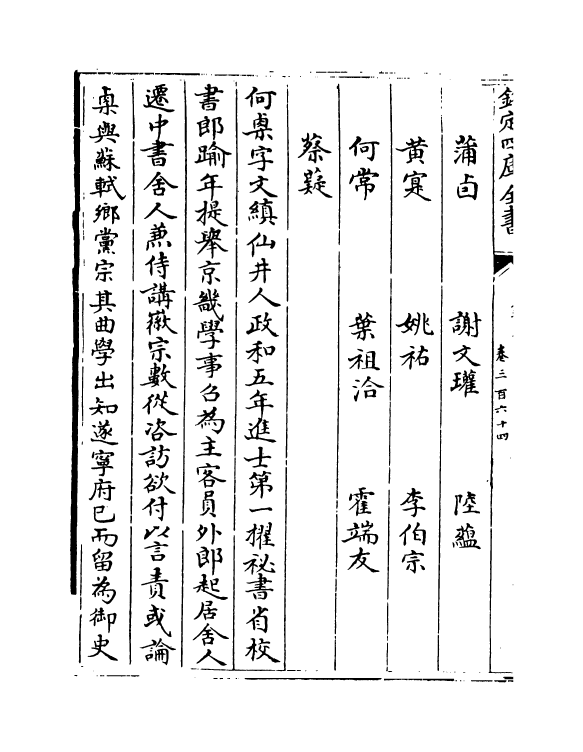 欽定四庫全書
卷三百六十四
蒲卣　謝文瓘　陸蘊
黄寔　姚祐　李伯宗
何常　葉祖洽　霍端友
蔡薿
何㮚字文縝仙井人政和五年進士第一擢祕書省校
書郎踰年提舉京畿學事召為主客員外郎起居舍人
遷中書舍人兼侍講徽宗數從咨訪欲付以言責或論
㮚與蘇軾鄉黨宗其曲學出知遂寧府已而留為御史